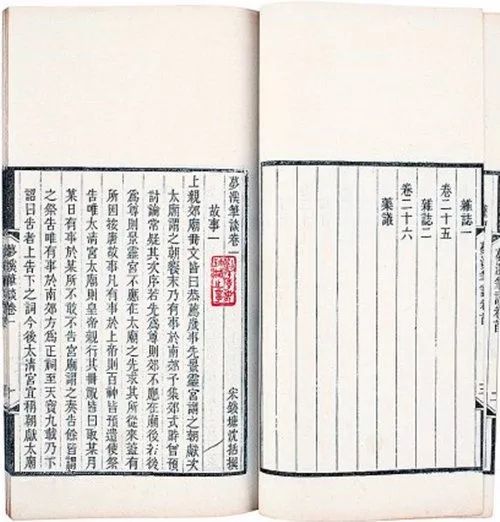 雜誌一
卷二十五
雜誌二
卷二十六
藥議
夢溪筆談卷首
夢溪筆談卷一 宋錢塘沈括撰
故事一
上親郊廟冊文皆曰恭薦歲事先景靈宮謂之朝獻次
太廟謂之朝饗末乃有事於南郊予集郊式時曾預
討論常疑其次序若先爲尊則郊不應在廟後若後
爲尊則景靈宮不應在太廟之先求其所從來蓋有
所因按唐故事凡有事於上帝則百神皆預遣使祭
告唯太清宮太廟則皇帝親行其冊祝皆曰取某月
某日有事於某所不敢不告宮廟謂之奏告餘皆謂
之祭告唯有事於南郊方爲正祠至天寶九載乃下
詔曰告者上告下之詞今後太清宮宜稱朝獻太廟
夢溪筆談卷一